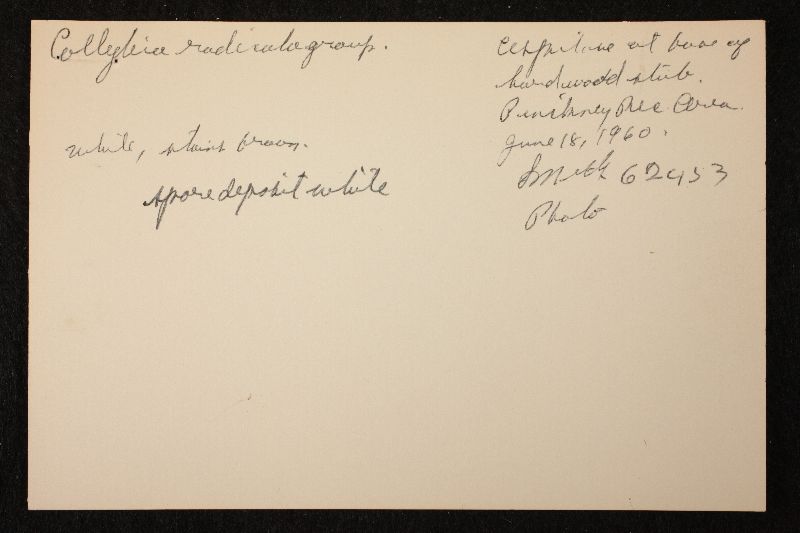 Collybia radicata group.
white, stains brown.
spore deposit white
cespitose at base of
hardwood stub.
Pinckney Rec. Area.
June 18, 1960.
Smith 62453
Photo